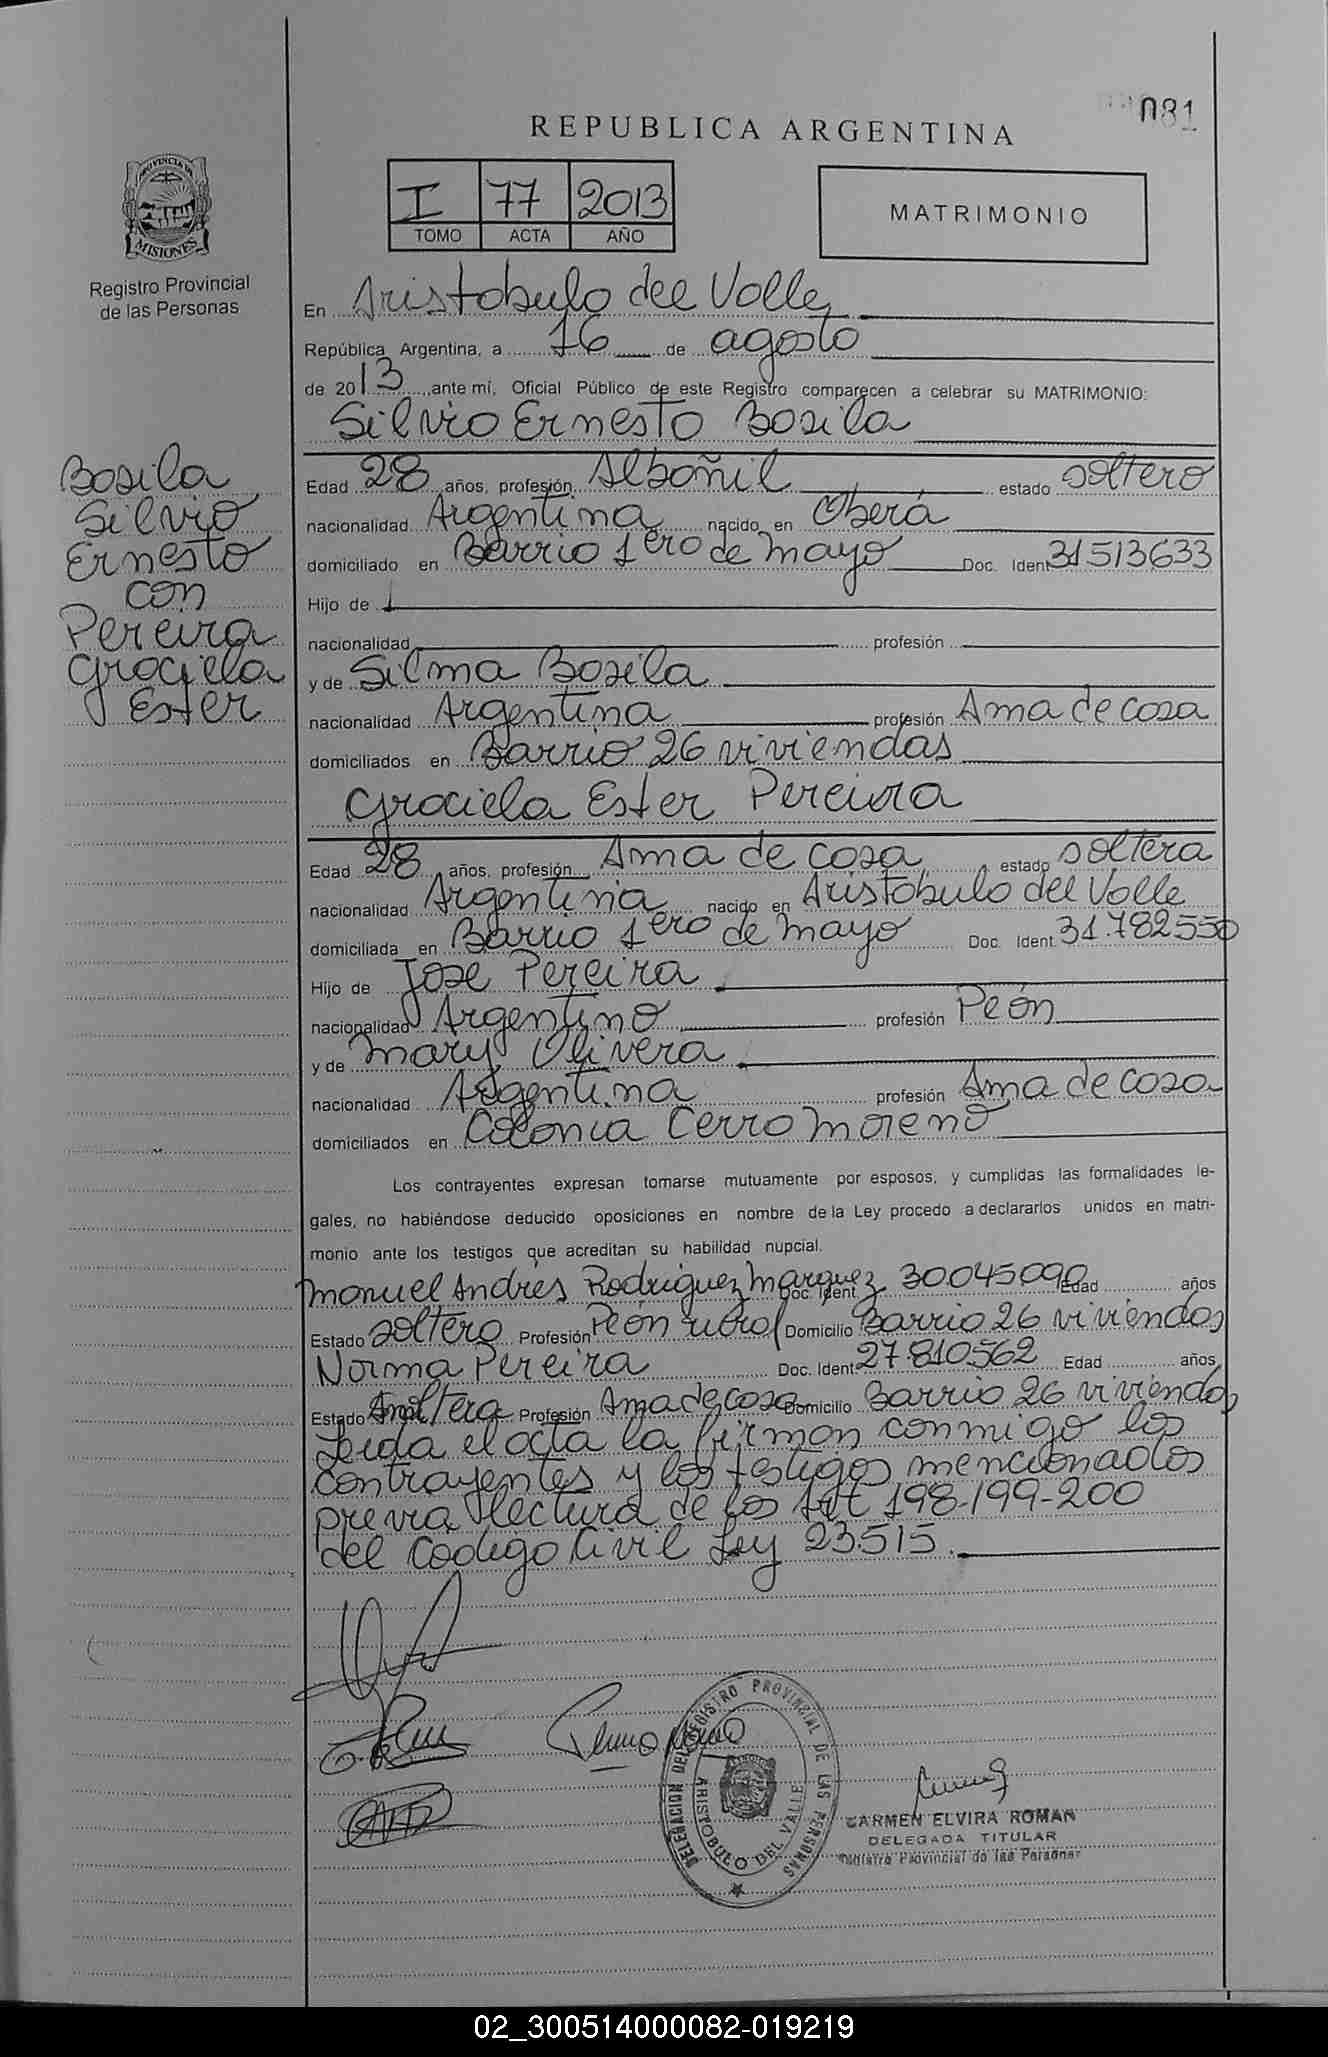 081
REPUBLICA ARGENTINA
PROVINCIA DE
MISIONES
Registro Provincial
de las Personas
I 77 2013
TOMO ACTA AÑO
MATRIMONIO
En Aristobulo del Valle
República Argentina, a 16 de agosto
de 2013, ante mí, Oficial Público de este Registro comparecen a celebrar su MATRIMONIO:
Silvio Ernesto Bosila
Bosila
Silvio
Ernesto
con
Pereira
Graciela
Ester
Edad 28 años, profesión Albañil estado soltero
nacionalidad Argentina nacido en Oberá
domiciliado en Barrio 1ero de mayo Doc. Ident 31513633
Hijo de
nacionalidad profesión
y de Silma Bosila
nacionalidad Argentina profesión Ama de casa
domiciliados en Barrio 26 viviendas
Graciela Ester Pereira
Edad 28 años, profesión Ama de casa, estado soltera
nacionalidad Argentina nacido en Aristobulo del Valle
domiciliada en Barrio 1ero de mayo Doc. Ident. 31.782550
Hijo de Jose Pereira
nacionalidad Argentino profesión Peón
y de Mary Olivera
nacionalidad Argentina profesión Ama de casa
domiciliados en Colonia Cerro Moreno
Los contrayentes expresan tomarse mutuamente por esposos, y cumplidas las formalidades le-
gales, no habiéndose deducido oposiciones en nombre de la Ley procedo a declararlos unidos en matri-
monio ante los testigos que acreditan su habilidad nupcial.
Manuel Andrés Rodriguez Marquez Doc. Ident. 30045090 Edad años
Estado soltero Profesión Peón rural Domicilio Barrio 26 viviendas
Norma Pereira Doc. Ident 27.810.562 Edad años
Estado soltera Profesión Ama de casa Domicilio Barrio 26 viviendas
Leida el acta la firman conmigo los
contrayentes y los testigos mencionados
previa lectura de los Art 198-199-200
del Codigo Civil Ley 23.515.
DELEGACION DEL REGISTRO PROVINCIAL DE LAS PERSONAS
ARISTOBULO DEL VALLE
CARMEN ELVIRA ROMAN
DELEGADA TITULAR
Registro Provincial de las Personas
02_300514000082-019219